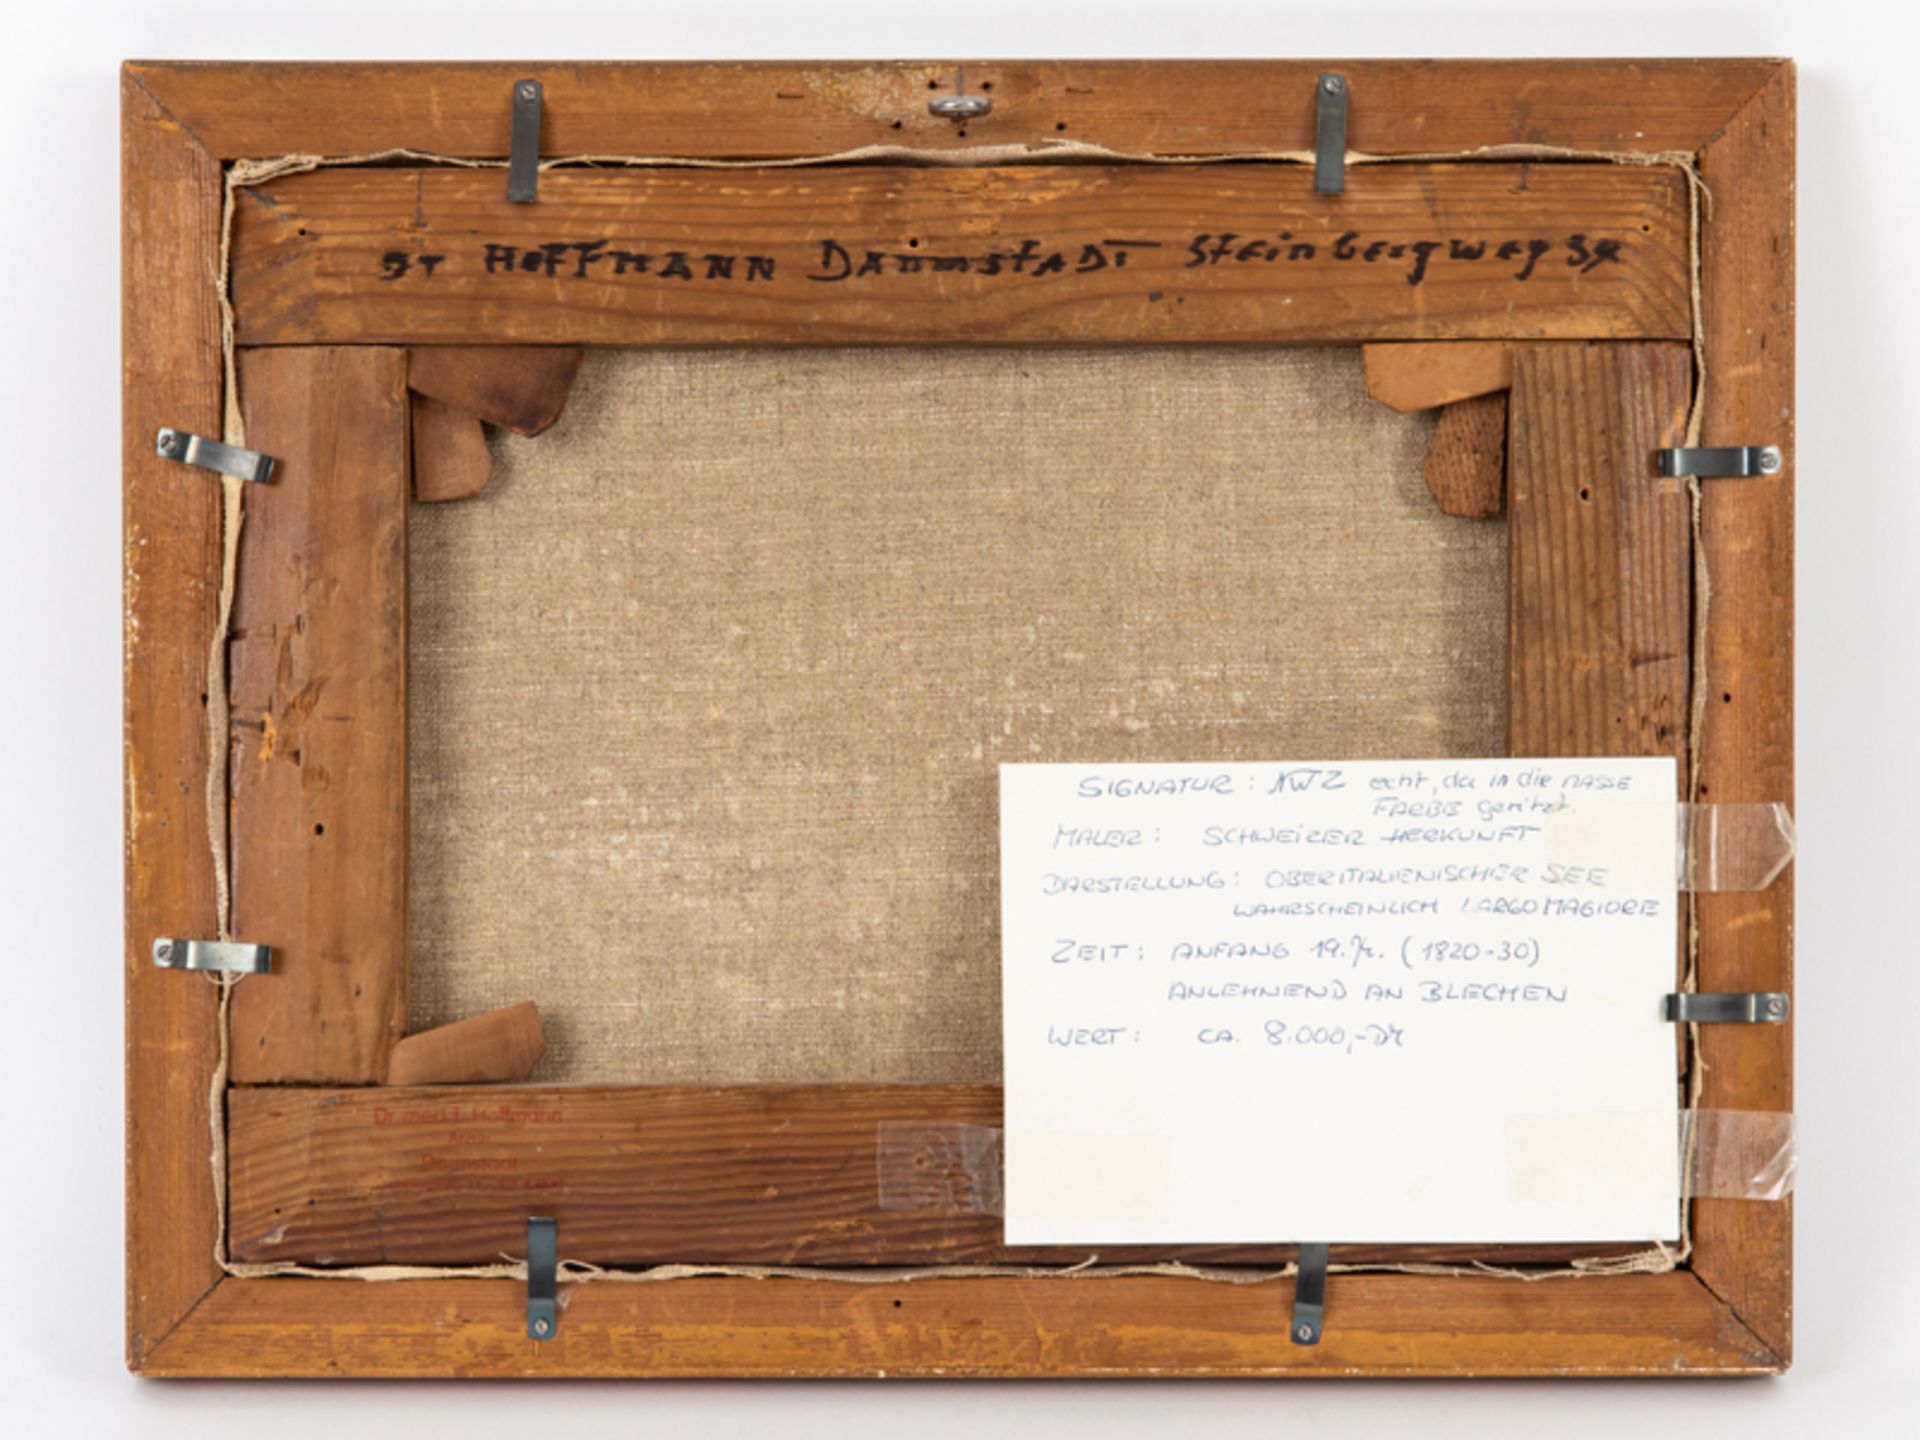 HOFFMANN DARMSTADT Steinbergweg
SIGNATUR: NWZ echt, da in die NASSE
FARBE geritzt.
MALER: SCHWEIZER HERKUNFT
DARSTELLUNG: OBERITALIENISCHER SEE
WAHRSCHEINLICH LARGO MAGIORE
ZEIT: ANFANG 19. Jh. (1820-30)
ANLEHNEND AN BLECHEN
WERT: CA. 8.000,- DM
Dr. med. I. Hoffmann
Darmstadt